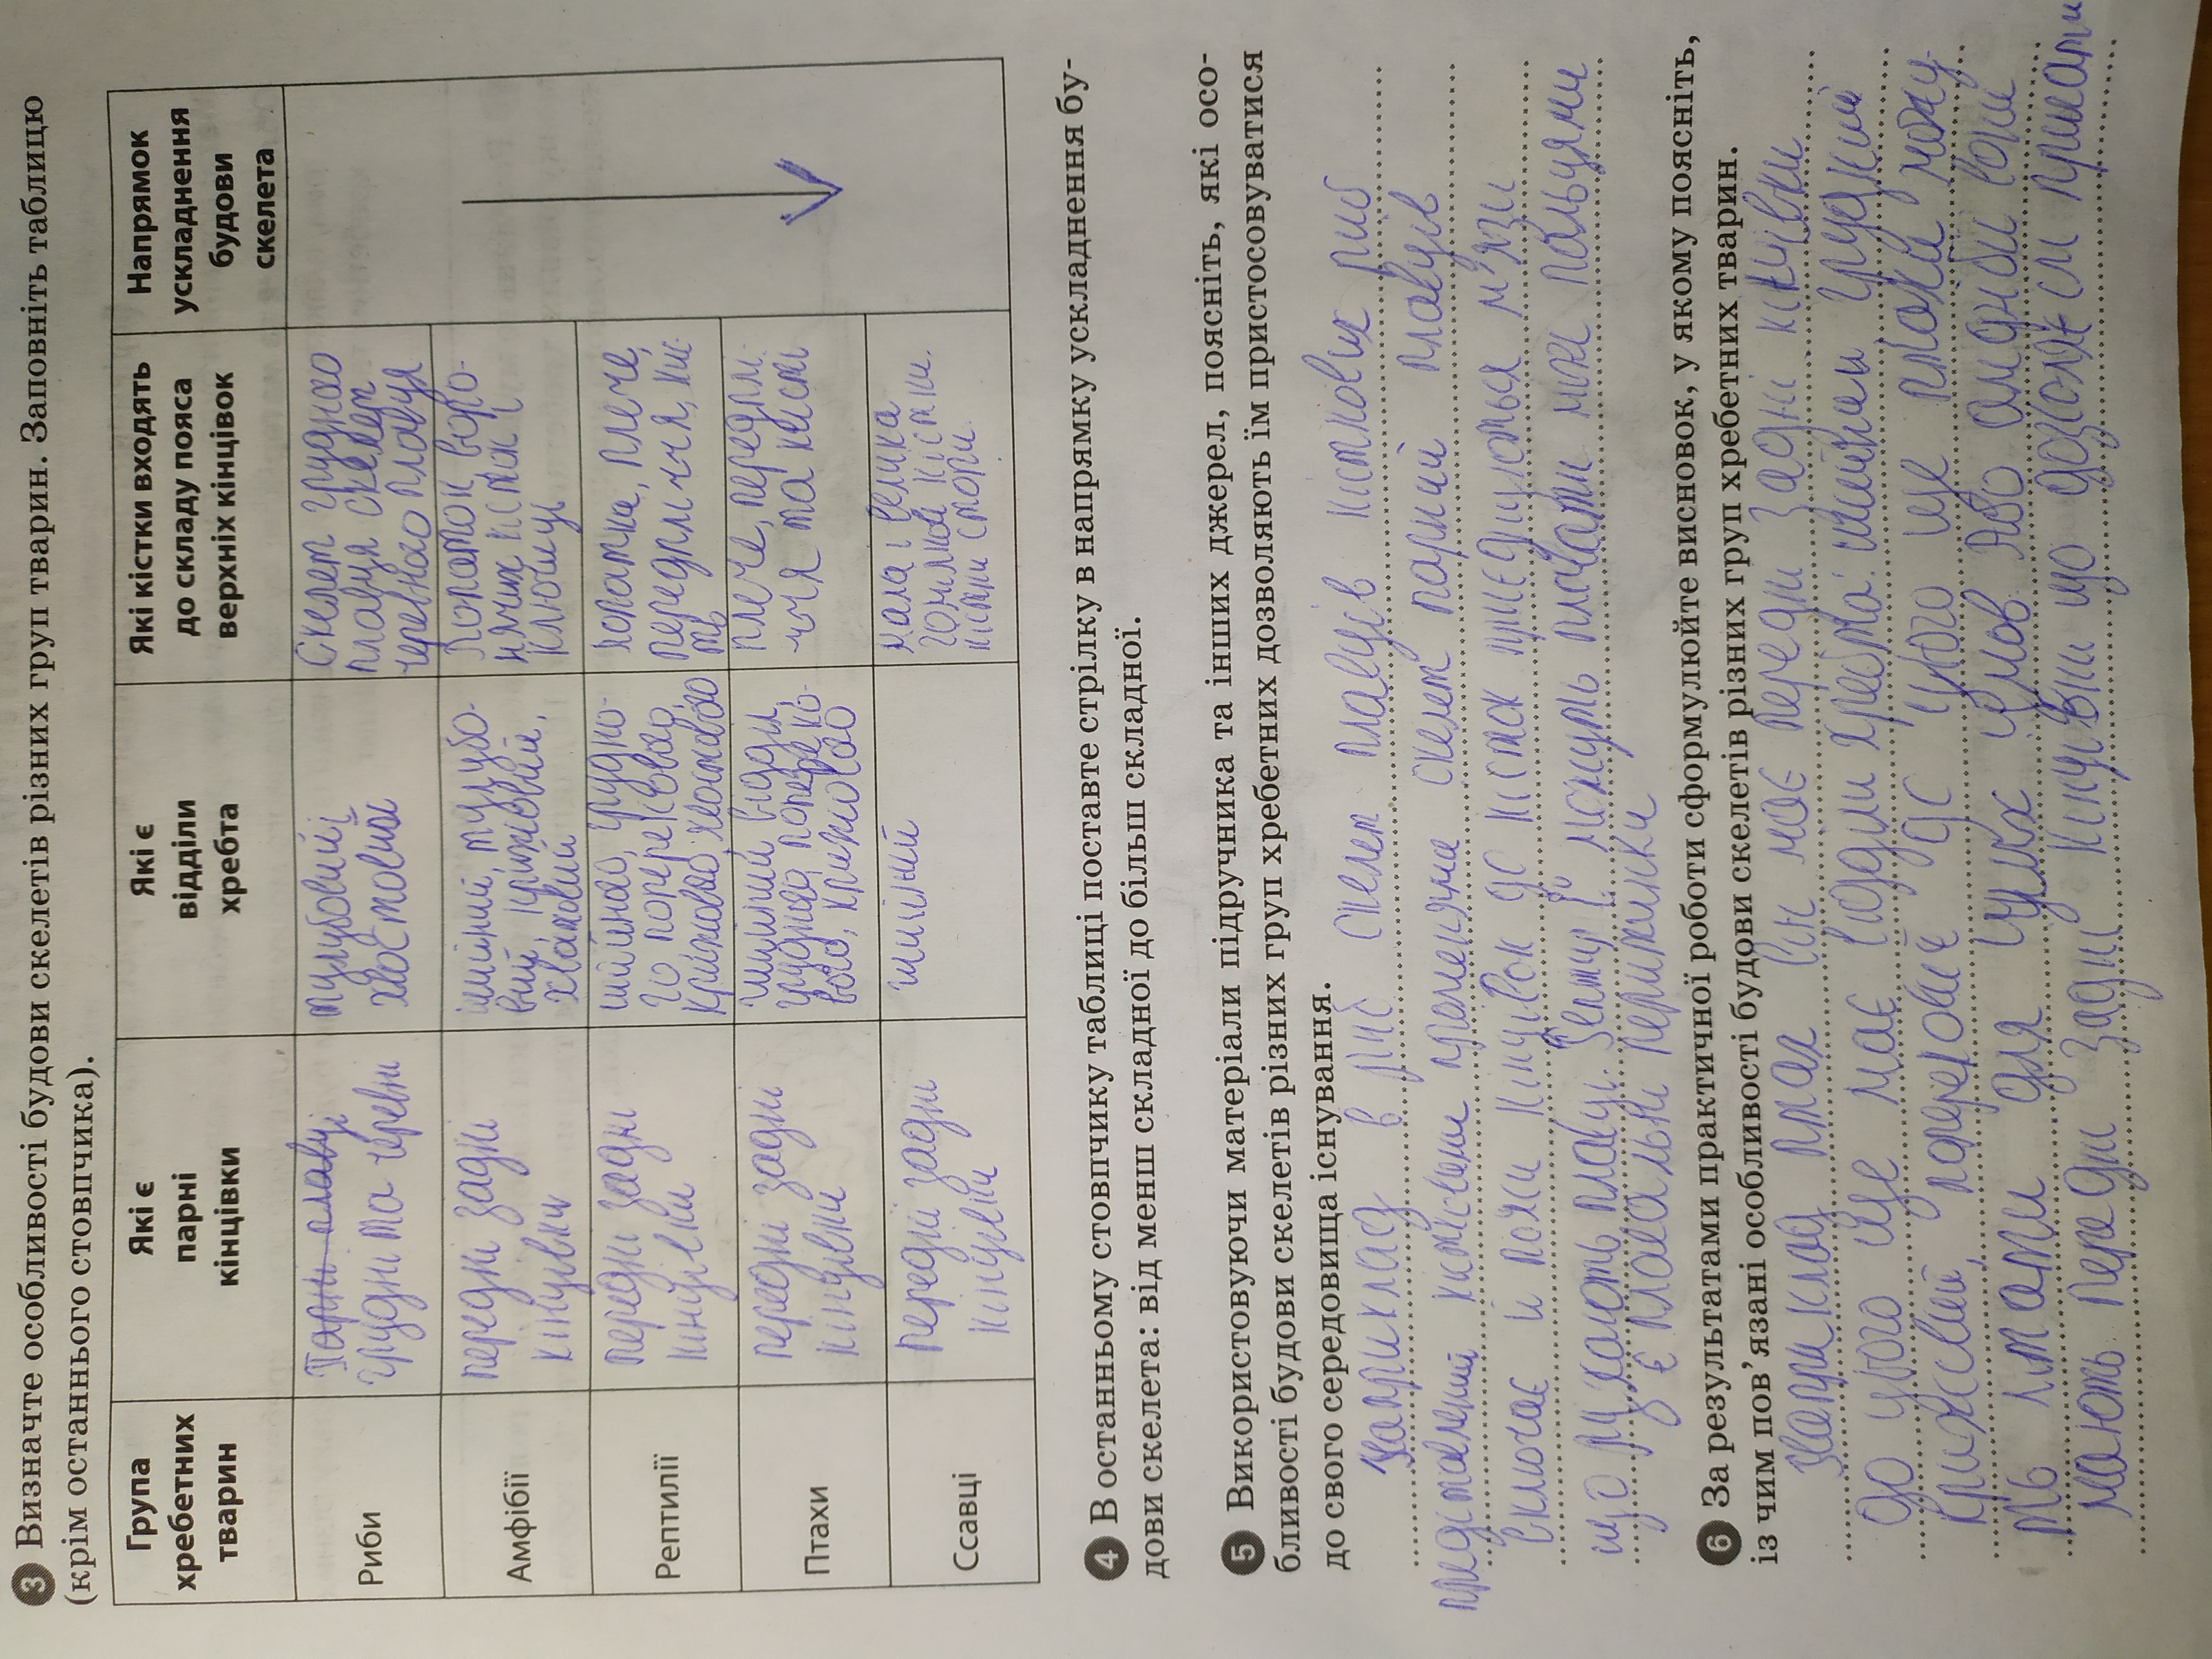 3 Визначте особливості будови скелетів різних груп тварин. Заповніть таблицю
(крім останнього стовпчика).
Група
хребетних
тварин
Які є
парні
кінцівки
Які є
відділи
хребта
Які кістки входять
до складу пояса
верхніх кінцівок
Напрямок
ускладнення
будови
скелета
Риби
грудні та черевні
тулубовий і
хвостовий
Скелет грудного
плавця скелет
черевного плавця
Амфібії
передні задні
кінцівки
шийний, тулубо-
вий, крижовий,
хвотовий
Лопаток, воро-
нячих кісток і
ключиць
Рептилії
передні задні
кінцівки
шийного, грудно-
го попереквого,
крижового хвостового
лопатка, плече,
передпліччя, кис-
ть
Птахи
передні задні
кінцівки
шийний відділ,
грудного попереко-
вого, крижового
плече, передпл-
ччя та кисті
Ссавці
передні задні
кінцівки
шийний
мала і велика
гомілкові кістки.
кістки стопи.
4 В останньому стовпчику таблиці поставте стрілку в напрямку ускладнення бу-
дови скелета: від менш складної до більш складної.
5 Використовуючи матеріали підручника та інших джерел, поясніть, які осо-
бливості будови скелетів різних груп хребетних дозволяють їм пристосовуватися
до свого середовища існування.
Наприклад в риб скелет плавців кісткових риб
представлений кістковими променями скелет парний плавців
включає й пояси кінцівок до кісток приєднуються м'язи
що рухають плавці. Вептиці можуть плавати між пальцями
є плавальні перитинки
6 За результатами практичної роботи сформулюйте висновок, у якому поясніть,
із чим пов'язані особливості будови скелетів різних груп хребетних тварин.
Наприклад птах він має передні задні кінчівки
до цього ще має відділи хребта: шийний грудний
крижовий, поперековий до цього ще птахи можу-
ть літати для цих умов або амфібії вони
мають передні задні кінцівки що дозволяє їм